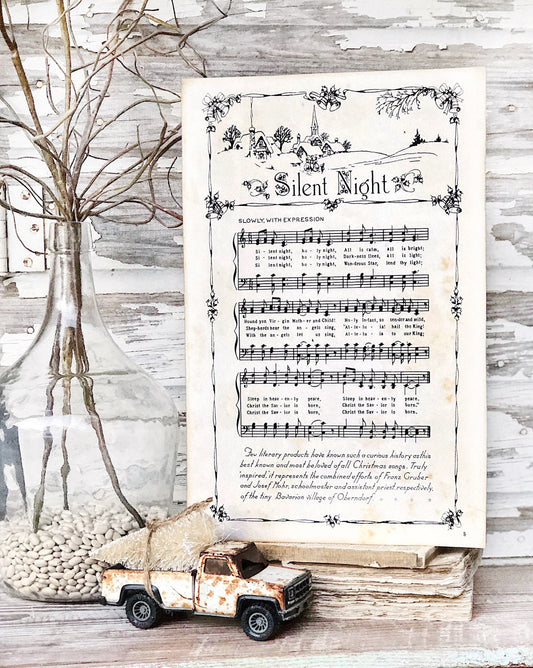 Silent Night
SLOWLY, WITH EXPRESSION
Si - lent night, ho - ly night, All is calm, all is bright;
Si - lent night, ho - ly night, Dark-ness flees, all is light;
Si - lent night, ho - ly night, Won-drous Star, lend thy light;
Round yon Vir - gin Moth - er and Child! Ho - ly In-fant, so ten-der and mild,
Shep-herds hear the an - gels sing, "Al - le - lu - ia! hail the King!
With the an - gels let us sing, Al - le - lu - ia to our King;
Sleep in heav - en - ly peace, Sleep in heav - en - ly peace.
Christ the Sav - ior is born, Christ the Sav - ior is born."
Christ the Sav - ior is born, Christ the Sav - ior is born.
Few literary products have known such a curious history as this
best known and most beloved of all Christmas songs. Truly
inspired, it represents the combined efforts of Franz Gruber
and Josef Mohr, schoolmaster and assistant priest, respectively,
of the tiny Bavarian village of Oberndorf.
5